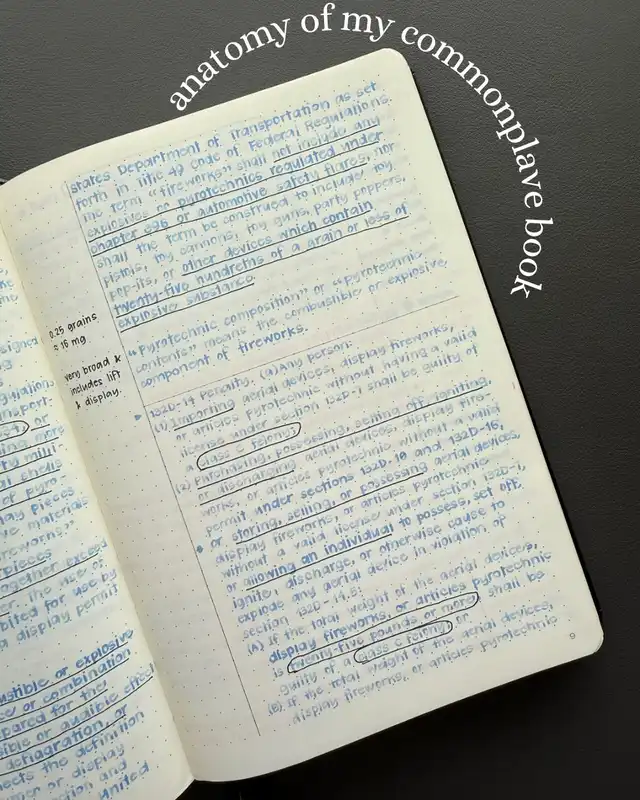 anatomy of my commonplave book
states Department of Transportation as set
forth in title 49 Code of Federal Regulations.
The term "fireworks" shall not include any
explosives or pyrotechnics regulated under
chapter 396 or automotive safety flares, nor
shall the term be construed to include toy
pistols, toy cannons, toy guns, party poppers,
pop-its, or other devices which contain
twenty-five hundreths of a grain or less of
explosive substance.
"Pyrotechnic composition" or "pyrotechnic
contents" means the combustible or explosive
component of fireworks.
132D-14 Penalty. (a) Any person:
(1) Importing aerial devices, display fireworks,
or articles pyrotechnic without having a valid
license under section 132D-7 shall be guilty of
a class C felony;
(2) Purchasing, possessing, setting off, igniting,
or discharging aerial devices, display fire-
works, or articles pyrotechnic without a valid
permit under sections 132D-10 and 132D-16,
or storing, selling, or possessing aerial devices,
display fireworks, or articles pyrotechnic
without a valid license under section 132D-7,
or allowing an individual to possess, set off,
ignite, discharge, or otherwise cause to
explode any aerial device in violation of
section 132D-14.5:
(A) If the total weight of the aerial devices,
display fireworks, or articles pyrotechnic
is twenty-five pounds or more, shall be
guilty of a class C felony; or
(B) If the total weight of the aerial devices,
display fireworks, or articles pyrotechnic
0.25 grains
≈ 16 mg
very broad &
includes lift
& display.
9
signed
or
ing more
display pieces
ve materials
pieces
together exceed
the use of
bited for use by
a display permit
ustible or explosive
or combination
pared for the
sible or audible effect
deflagration, or
meets the definition
or display
and
United